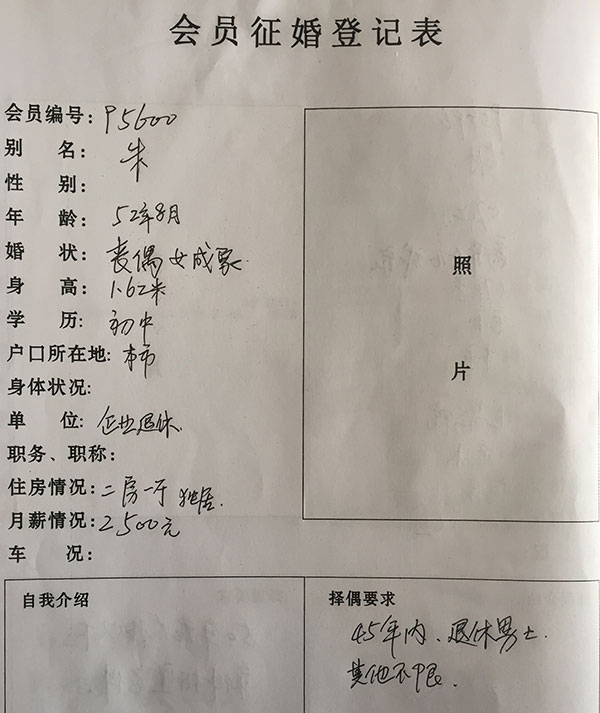 会员征婚登记表
会员编号: P5600
别 名: 朱
性 别:
年 龄: 52年8月
婚 状: 丧偶 女成家
身 高: 1.62米
学 历: 初中
户口所在地: 本市
身体状况:
单 位: 企业退休
职务、职称:
住房情况: 二房一厅 独居.
月薪情况: 2500元
车 况:
照
片
自我介绍
择偶要求
45年内、退休男士.
其他不限.